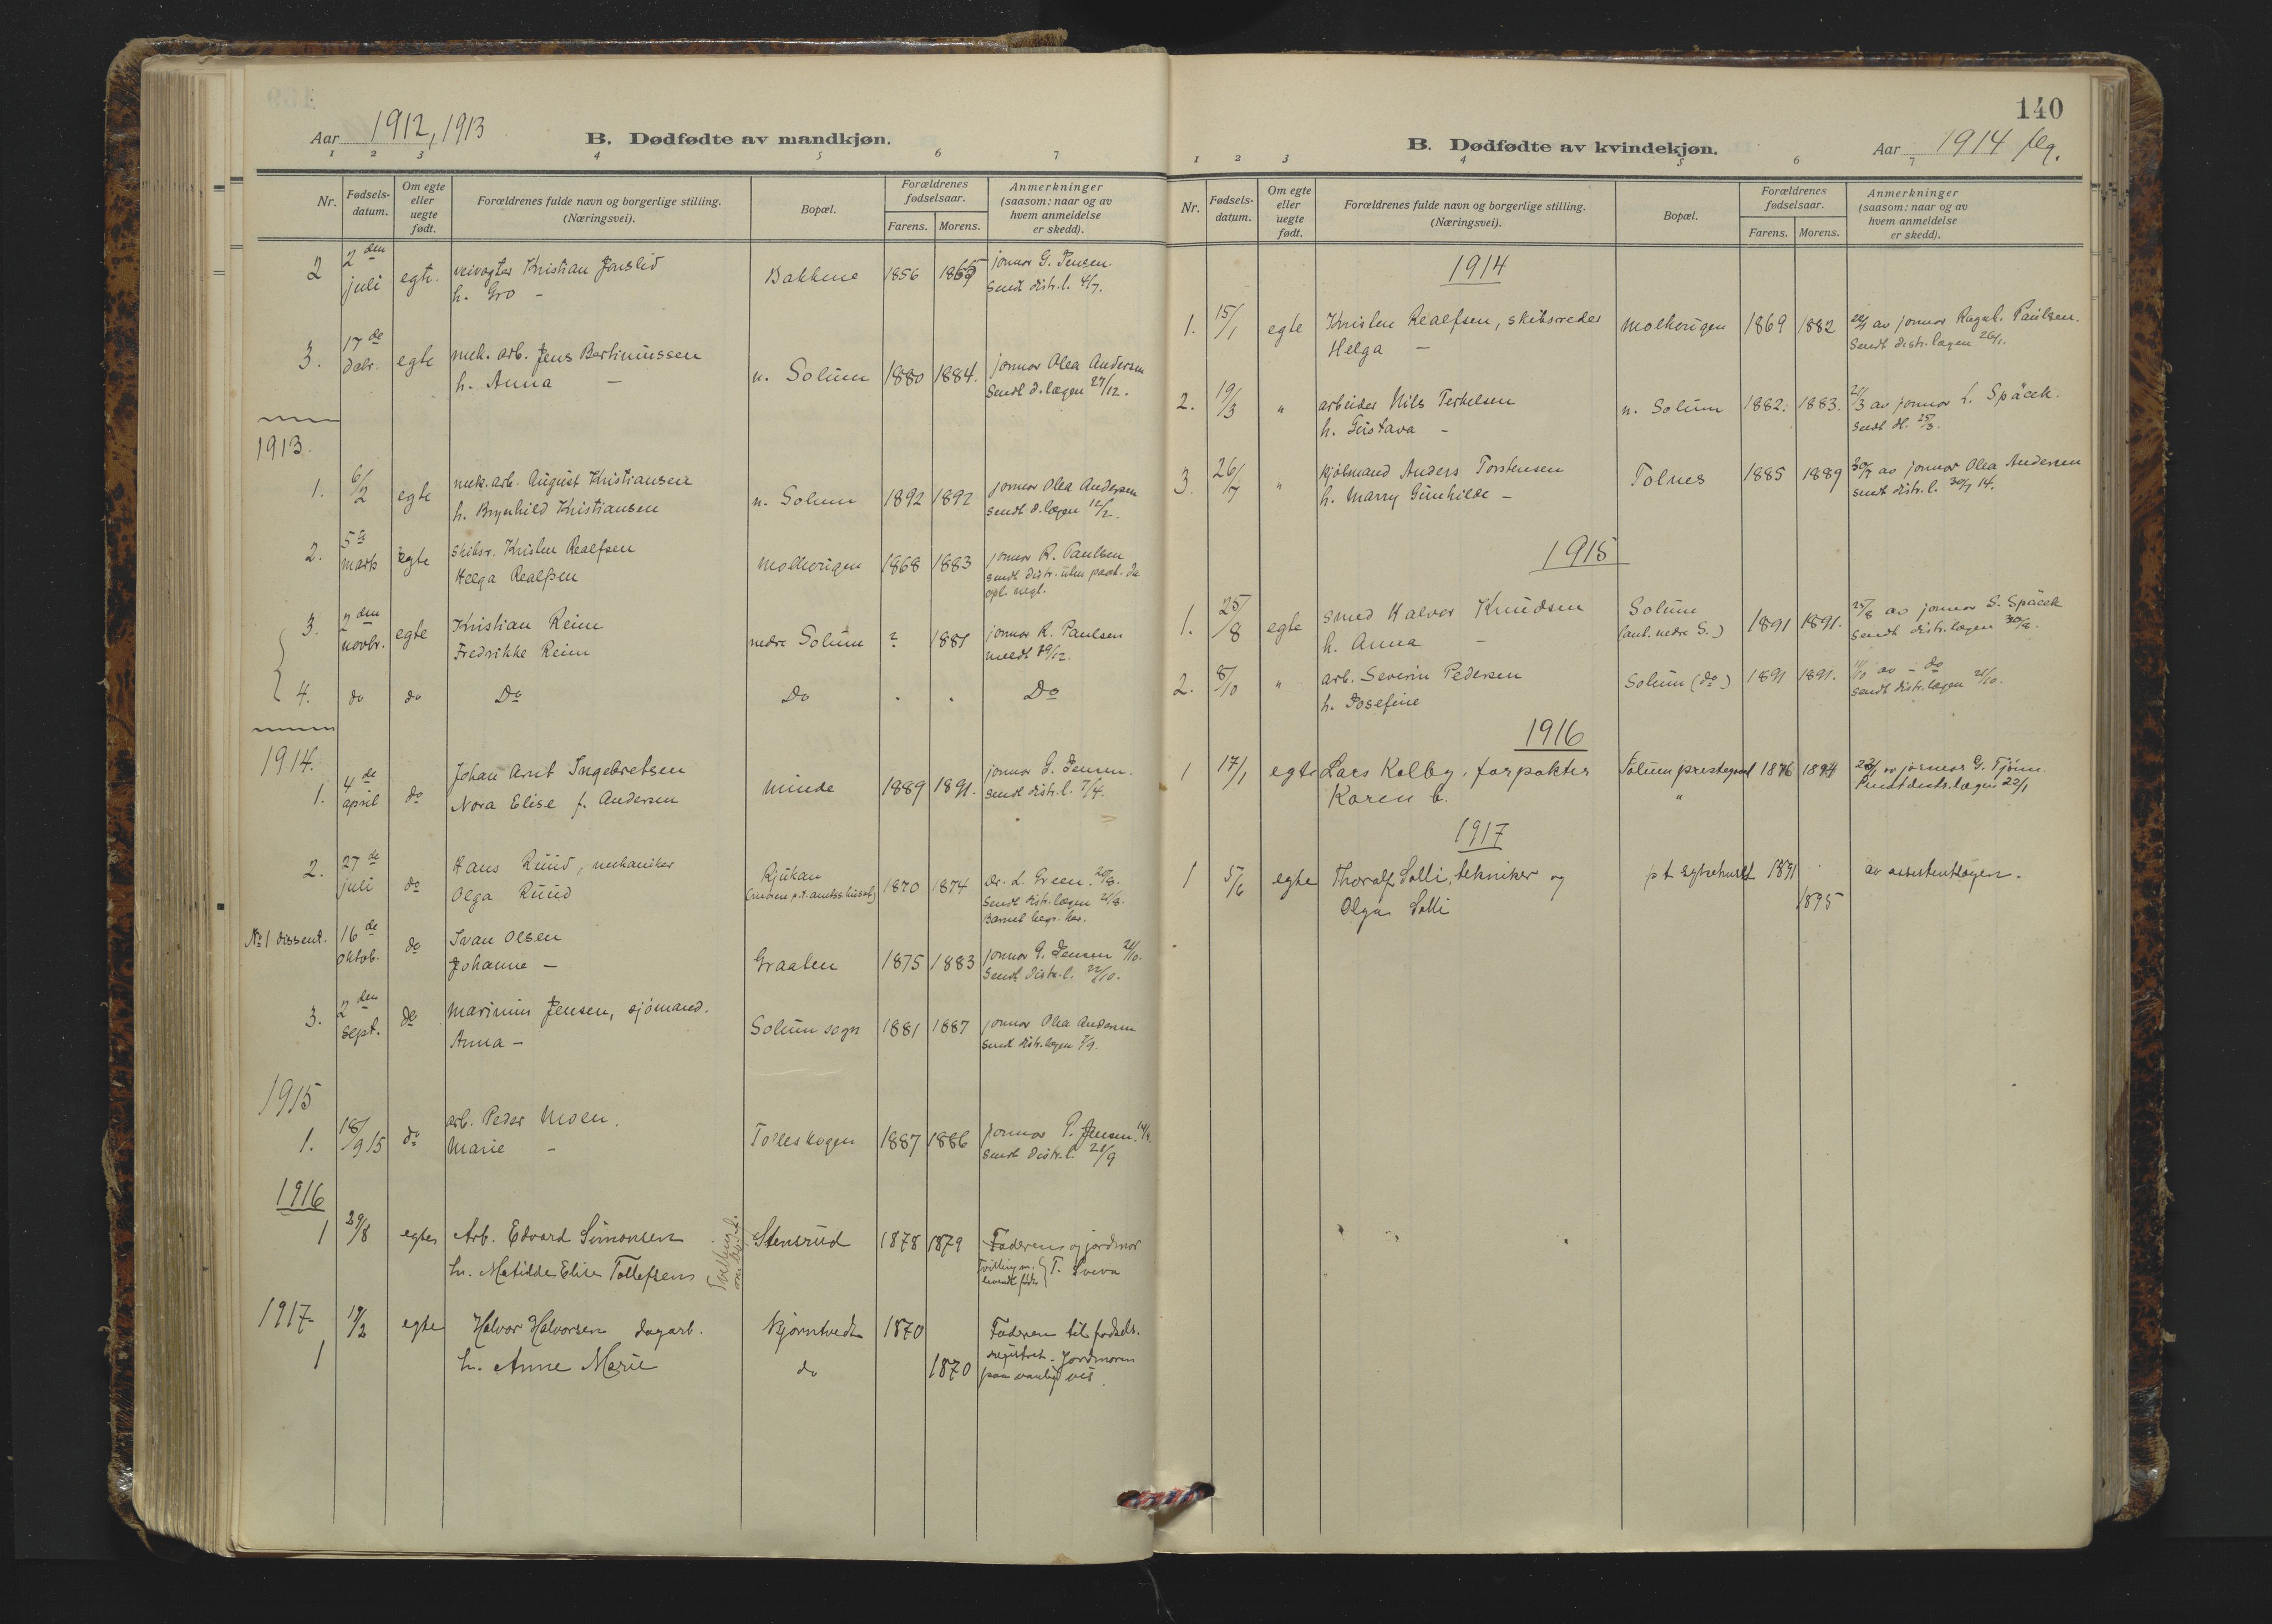 Aar 1912, 1913
B. Dødfødte av mandkjøn.
1 2 3 4 5 6 7
Nr. Fødsels-datum. Om egte eller uegte født. Forældrenes fulde navn og borgerlige stilling. (Næringsvei). Bopæl. Forældrenes fødselsaar. Farens. Morens. Anmerkninger (saasom: naar og av hvem anmeldelse er skedd).
2 2den egte veivogter Kristian Bakkene 1856 jormor G. Jensen.
juli h. Gro - Sendt distr.l. 4/7.
3. 17de egte mek. arb. Jens Bertiniussen n. Solum 1880 1884. jormor Olea Andersen
Debr. h. Anna - Sendt d.lægen 27/12.
1913.
1. 6/2 egte mek. arb. August Kristiansen n. Solum 1892 1892 jormor Olea Andersen
h. Brynhild Kristiansen sendt d.lægen 12/2.
2. 5te egte skibsr. Kristen Realfsen Molhougen 1868 1883 jormor R. Paulsen
marts Helga Realfsen sendt distr. uten paat. da
opl. negl.
3. 2den egte Kristian Reim nedre Solum ? 1881 jormor R. Paulsen
novbr. Fredrikke Reim meldt 29/12.
4. do do Do Do " " Do
1914.
1. 4de do Johan Arnt Ingebretsen Minde 1889 1891. jormor G. Jensen.
april Nora Elise f. Andersen sendt distr.l. 7/4.
2. 27de do Hans Ruud, mekaniker Rjukan 1870 1874 Dr. L. Green. 20/8.
juli Olga Ruud (moren p.t. amtssykehuset) Sendt distr.lægen 21/8.
Barnet begr. her.
No 1 dissent. 16de do Ivan Olsen Graaten 1875 1883 jormor G. Jensen 21/10.
oktob. Johanne - Sendt distr.l. 22/10.
3. 2den do Marinius Jensen, sjömand. Solum sogn 1881 1887 jormor Olea Andersen
sept. Anna - sendt distr.lægen 7/9.
1915
1. 18/9 15 do arb. Peder Moen. Tolleskogen 1887 1886 jormor G. Jensen.
Marie - sendt distr.l. 21/9
1916
1 29/8 egte Arb. Edvard Simonsen Stensrud 1878 1879 Faderen og jordmor
h. Matilde Elise Tollefsen Tvilling m. levende født T. Sveva
1917 19/2 egte Halvor Halvorsen dagarb. Bjørntvedt 1870 Faderen til fødsels-
1 h. Anne Marie do 1870 registret. Jordmoren
paa vanlig vis.
140
B. Dødfødte av kvindekjøn.
Aar 1914 flg.
1 2 3 4 5 6 7
Nr. Fødsels-datum. Om egte eller uegte født. Forældrenes fulde navn og borgerlige stilling. (Næringsvei). Bopæl. Forældrenes fødselsaar. Farens. Morens. Anmerkninger (saasom: naar og av hvem anmeldelse er skedd).
1914
1. 15/1 egte Kristen Realfsen, skibsreder Molhougen 1869 1882 22/1 av jormor Ragnh. Paulsen.
Helga - Sendt distr.lægen 26/1.
2. 19/3 " arbeider Nils Terkelsen n. Solum 1882. 1883. 21/3 av jormor L. Späcek.
h. Gustava - Sendt dl. 25/3.
3. 26/7 " kjøbmand Anders Torstensen Tolnes 1885 1889 30/7 av jormor Olea Andersen
h. Marry Gunhilde - sendt distr.l. 30/7 14.
1915
1. 25/8 egte smed Halvor Knudsen Solum 1891 1891. 25/8 av jormor S. Späcek
h. Anna - (ant. nedre S.) sendt distr.lægen 30/8.
2. 8/10 " arb. Severin Pedersen Solum (do) 1891 1891. 11/10 av - do
h. Josefine sendt distr.lægen 21/10.
1916
1 17/1 egte Lars Kolby, forpakter Solum prestegaard 1876 1874 22/1 av jormor G. Tjønn.
Karen b. " Sendt distr.lægen 22/1
1917
1 5/6 egte Thoralf Solli, tekniker og pt sykehuset 1891 av assistentlægen.
Olga Solli 1895